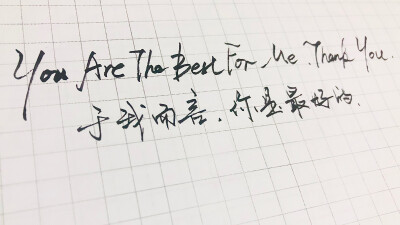 You Are The Best For Me. Thank You.
于我而言.你是最好的.